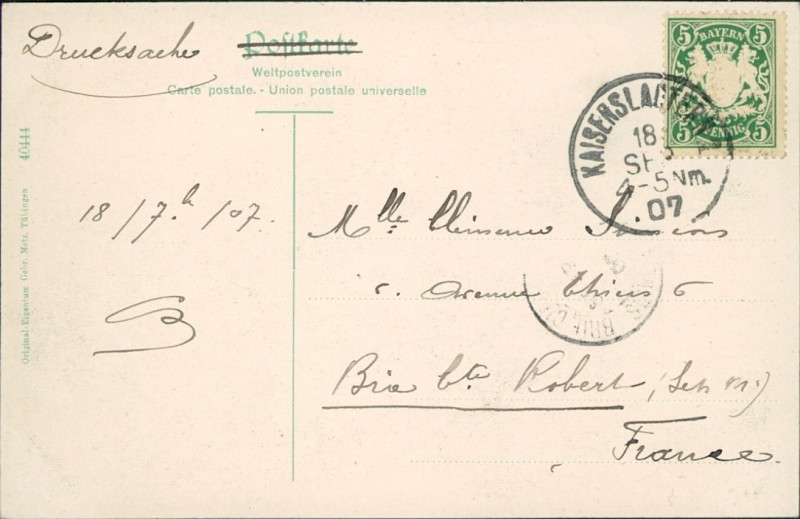 Drucksache
Postkarte
Weltpostverein
Carte postale. - Union postale universelle
BAYERN
5 5
5 PFENNIG 5
KAISERSLAUTERN
18
SEP
4-5 Nm.
07
40444
Original-Eigentum Gebr. Metz, Tübingen
18/7.h/07.
B
Mlle Clémence Simeons
6. Avenue Thiers 6
BRIE
Brie Cte Robert (Set M)
France.